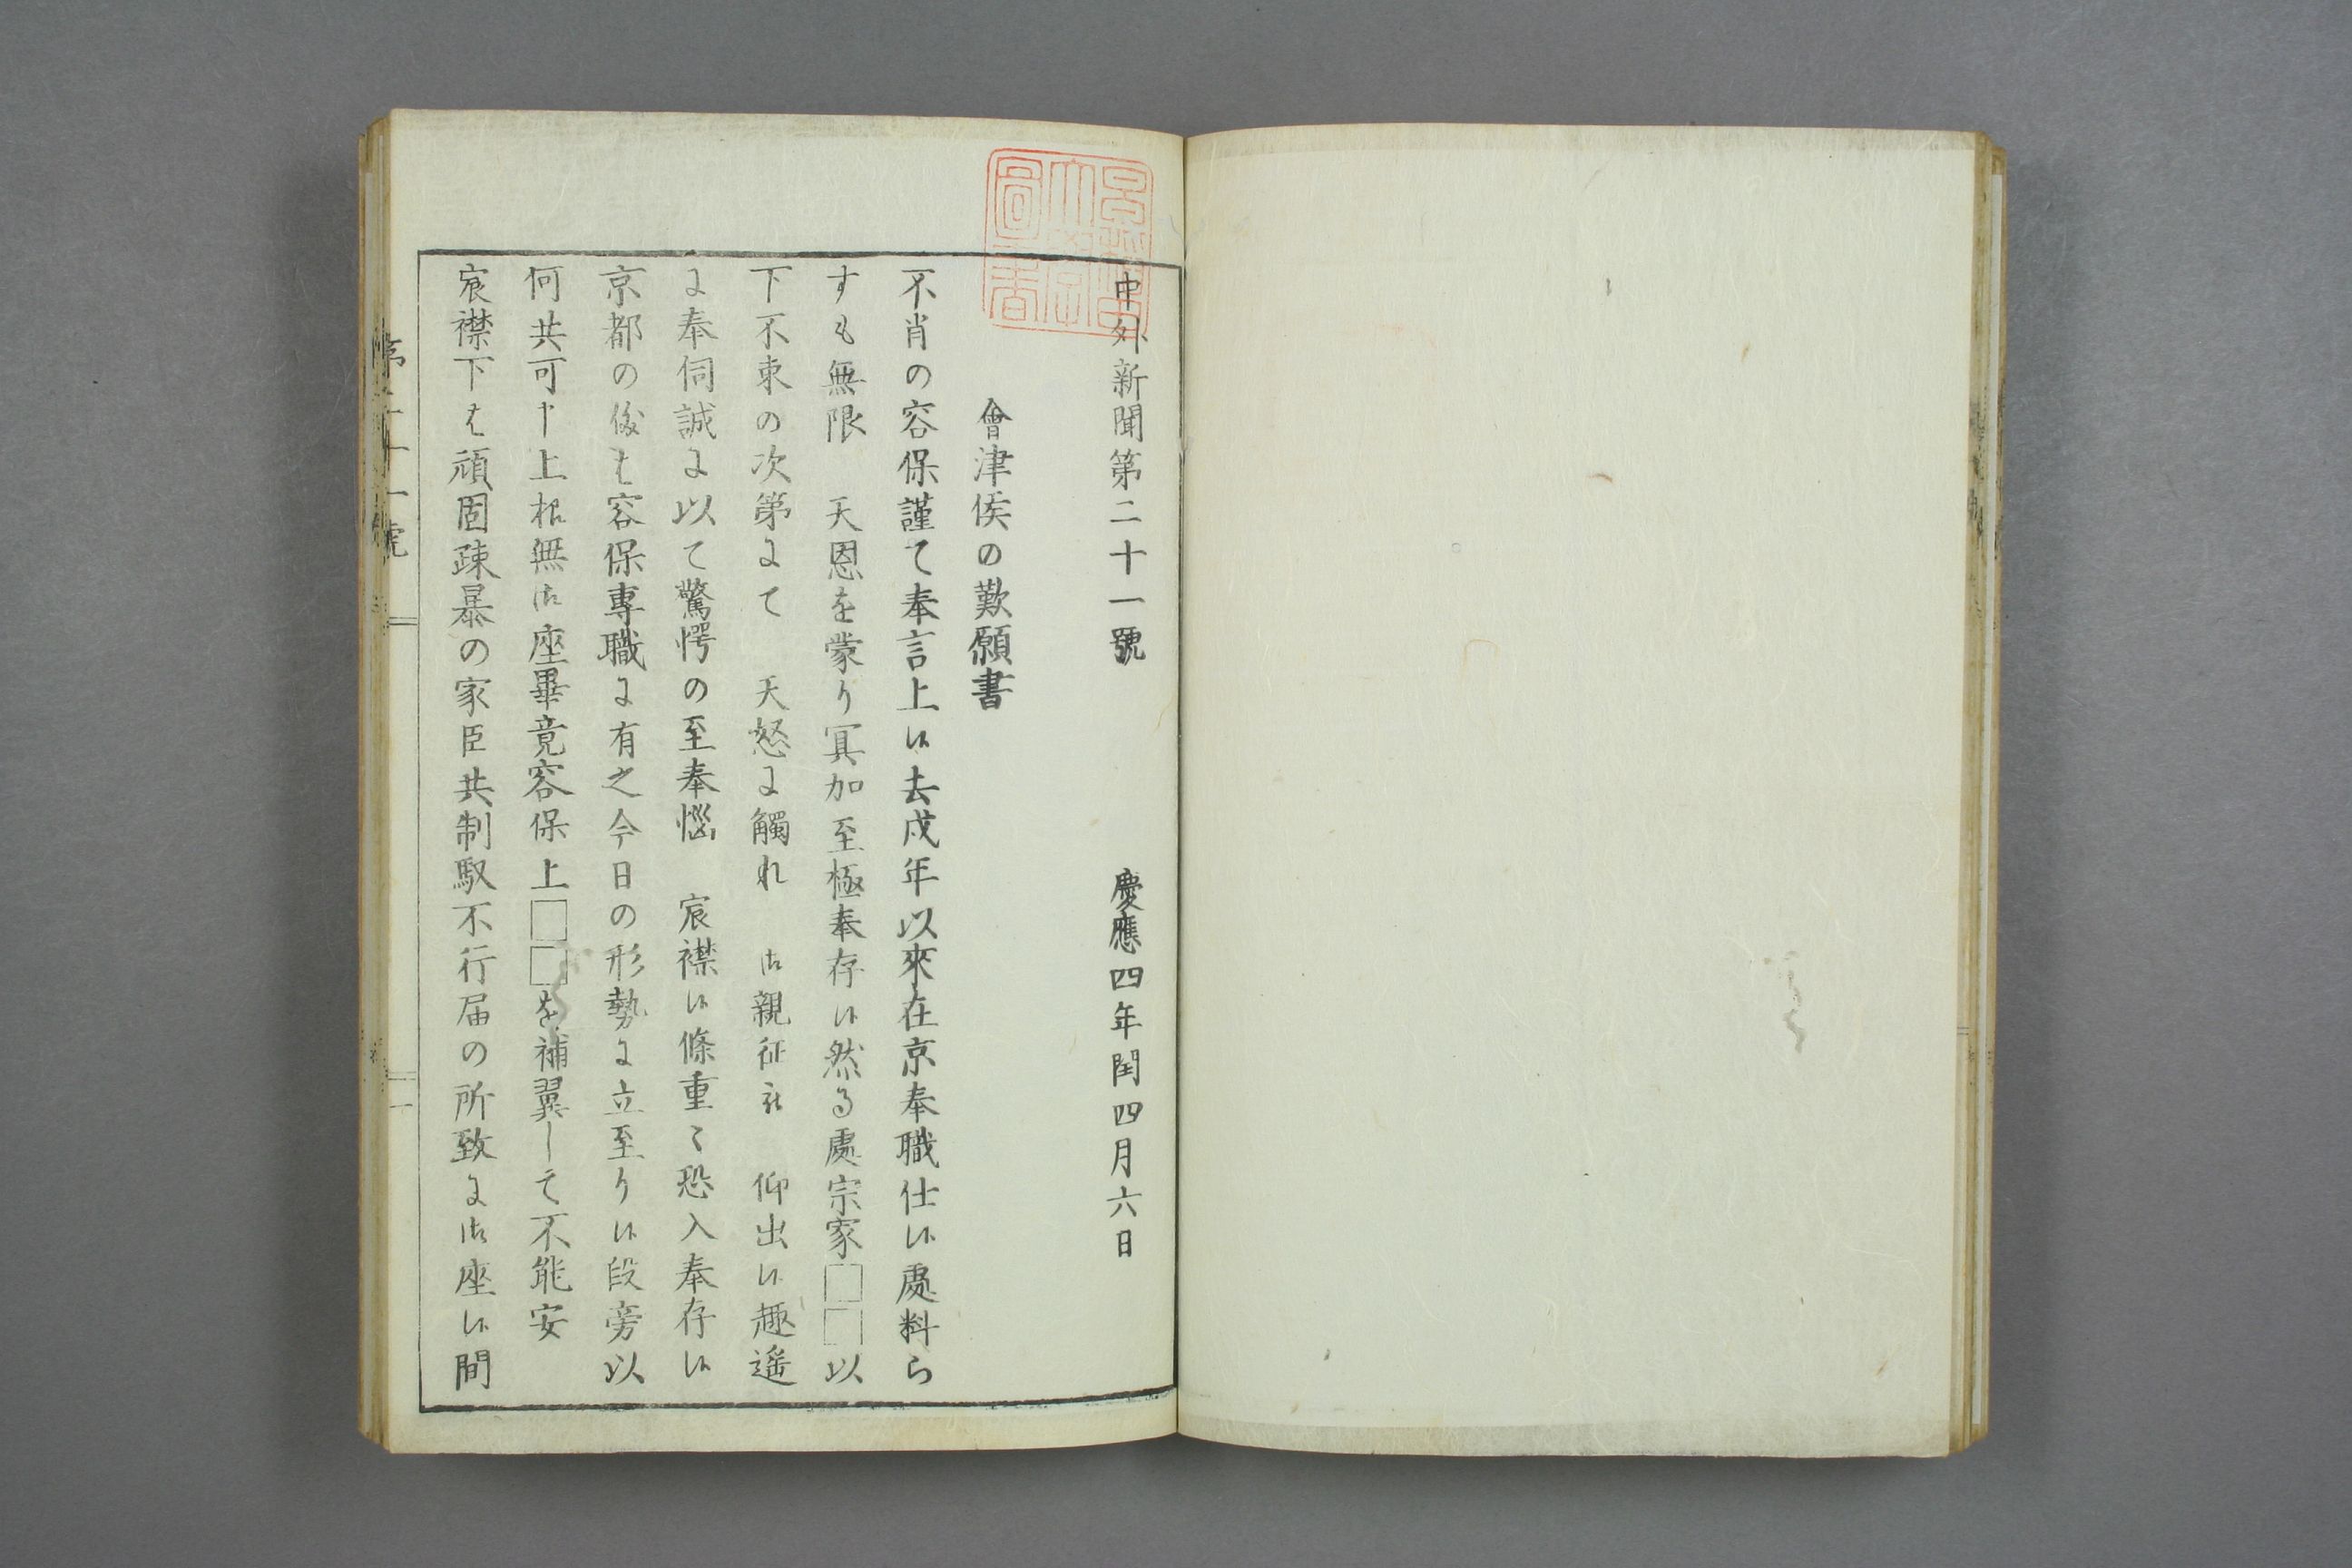 中外新聞第二十一號 慶應四年閏四月六日
會津侯の歎願書
不肖の容保謹て奉言上候去戌年以來在京奉職仕候處料ら
すも無限 天恩を蒙り冥加至極奉存候然る處宗家□□以
下不束の次第にて 天怒に觸れ 御親征被 仰出候趣遥
に奉伺誠に以て驚愕の至奉惱 宸襟候條重〻恐入奉存候
京都の儀は容保專職に有之今日の形勢に立至り候段旁以
何共可申上樣無御座畢竟容保上□□を補翼して不能安
宸襟下は頑固疎暴の家臣共制馭不行届の所致に御座候間